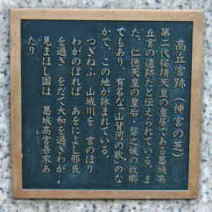 高丘宮跡（神宮の芝）
第二代綏靖天皇の皇居である葛城高
丘宮の遺跡だと伝えられている。ま
た、仁徳天皇の皇后・磐之媛の故郷
でもあり、有名な「山背河の歌」のな
かで、この地が詠まれている。
つぎねふ　山城川を　宮のぼり
わがのぼれば　あをによし那良
を過ぎ　をだて大和を過ぎわが
見まほし国は　葛城高宮我家あ
たり